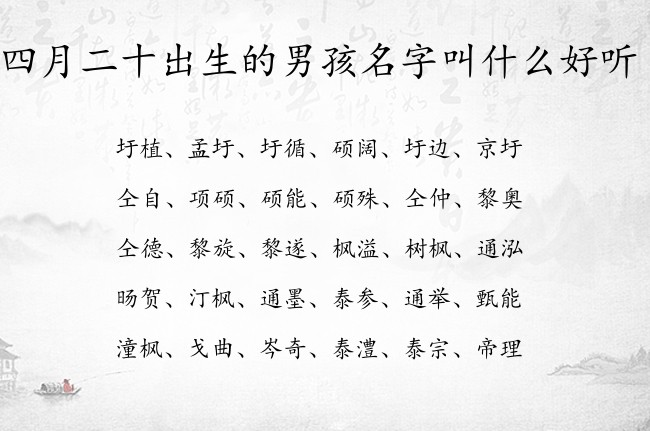 四月二十出生的男孩名字叫什么好听
圩植、孟圩、圩循、硕阔、圩边、京圩
仝自、项硕、硕能、硕殊、仝仲、黎奥
仝德、黎旋、黎遂、枫溢、树枫、通泓
旸贺、汀枫、通墨、泰参、通举、甄能
潼枫、戈曲、岑奇、泰澧、泰宗、帝理